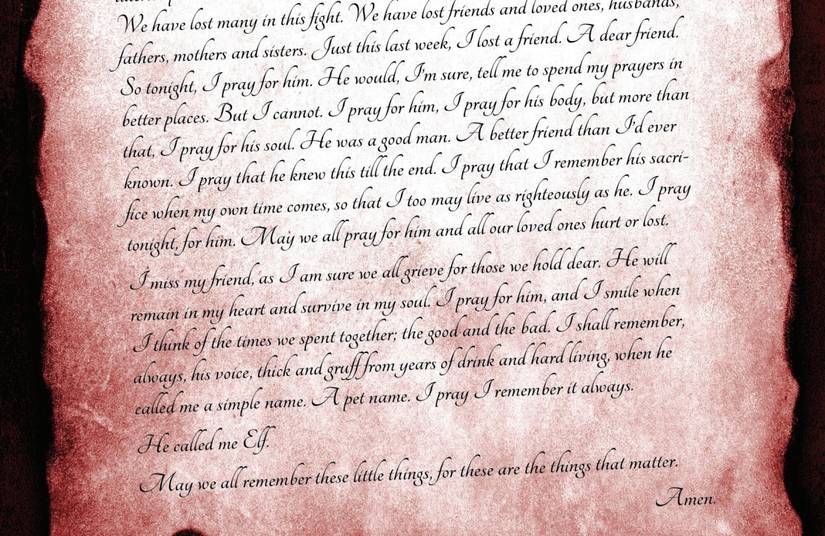 We have lost many in this fight. We have lost friends and loved ones, husbands,
fathers, mothers and sisters. Just this last week, I lost a friend. A dear friend.
So tonight, I pray for him. He would, I'm sure, tell me to spend my prayers in
better places. But I cannot. I pray for him, I pray for his body, but more than
that, I pray for his soul. He was a good man. A better friend than I'd ever
known. I pray that he knew this till the end. I pray that I remember his sacri-
fice when my own time comes, so that I too may live as righteously as he. I pray
tonight, for him. May we all pray for him and all our loved ones hurt or lost.
I miss my friend, as I am sure we all grieve for those we hold dear. He will
remain in my heart and survive in my soul. I pray for him, and I smile when
I think of the times we spent together; the good and the bad. I shall remember,
always, his voice, thick and gruff from years of drink and hard living, when he
called me a simple name. A pet name. I pray I remember it always.
He called me Elf.
May we all remember these little things, for these are the things that matter.
Amen.